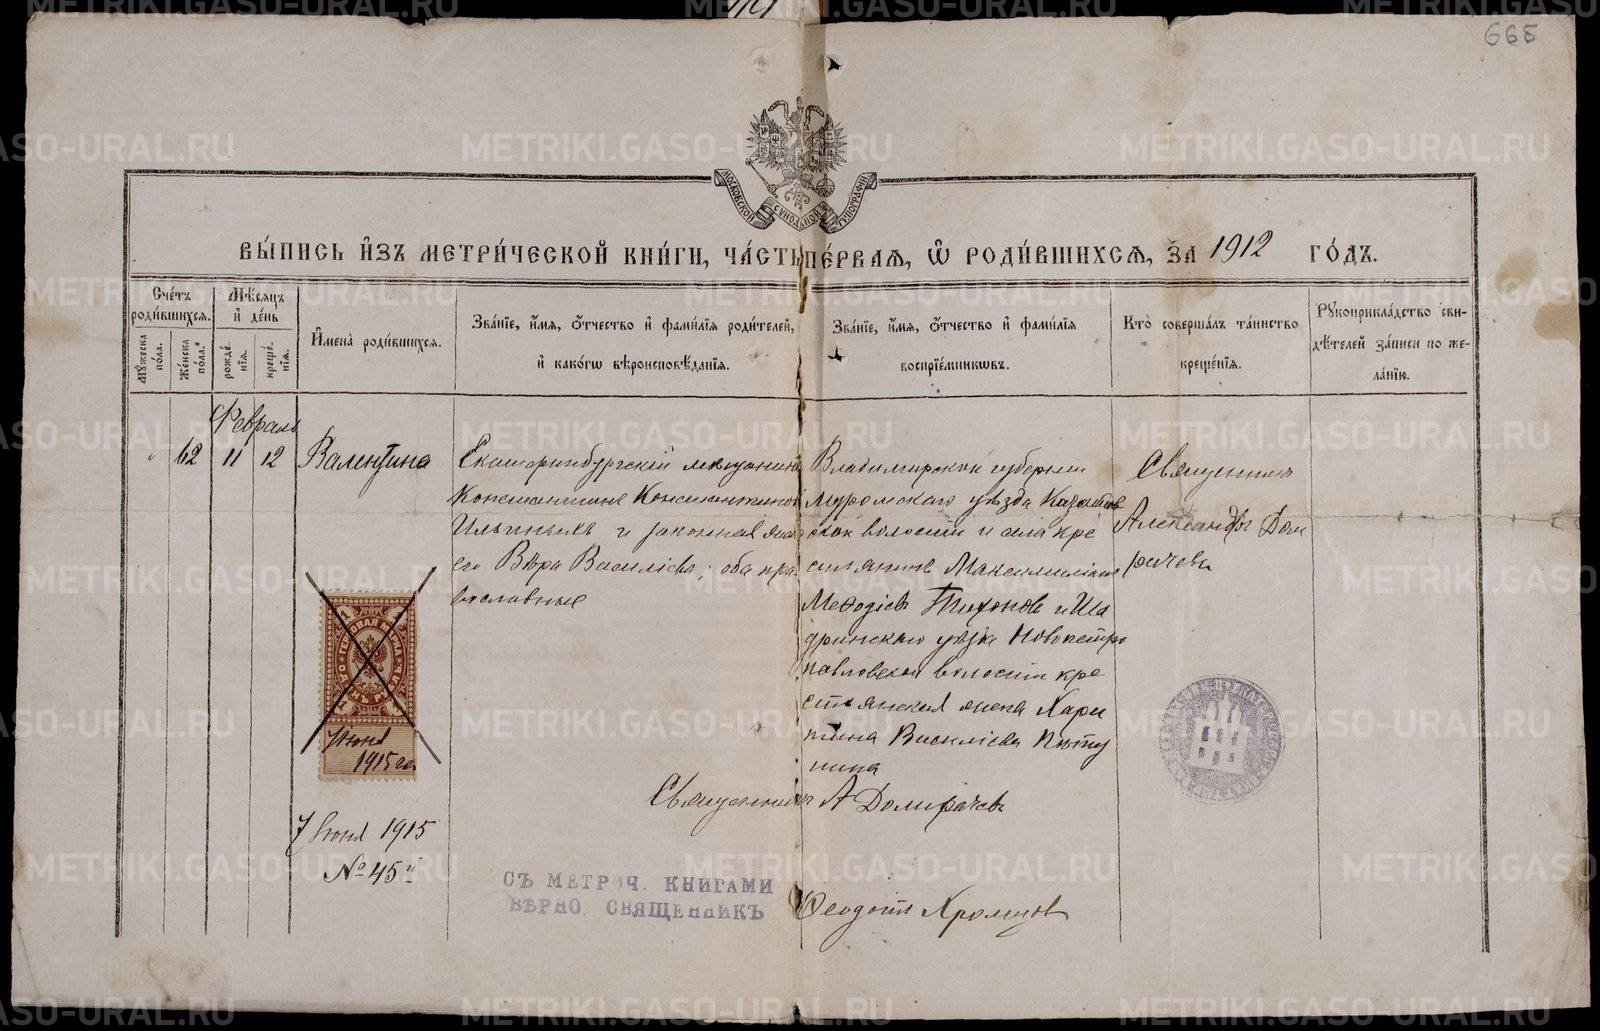 665
МОСКОВСКОЙ СѴНОДАЛНОЙ ТѴПОГРАФІИ
ВЫ́ПИСЬ И҆ЗЪ МЕТРИ́ЧЕСКОЙ КНИ́ГИ, ЧА́СТЬ ПЕ́РВАѦ, Ѿ РОДИ́ВШИХСѦ, ЗА 1912 ГО́ДЪ.
Сче́тъ роди́вшихсѧ.
Мꙋ́жеска по́ла.
Же́нска по́ла.
Мѣ́сѧцъ и҆ де́нь
рожде́нїѧ.
креще́нїѧ.
И҆мена̀ роди́вшихсѧ.
Зва́нїе, и҆́мѧ, ѻ҆́тчество и҆ фами́лїѧ роди́телей,
и҆ како́гѡ вѣроисповѣ́данїѧ.
Зва́нїе, и҆́мѧ, ѻ҆́тчество и҆ фами́лїѧ
воспрїе́мникѡвъ.
Кто̀ соверша́лъ та́инство
креще́нїѧ.
Рꙋкоприкла́дство сви-
дѣ́телей за́писи по же-
ла́нїю.
Февраль
" 62 11 12 Валентина
Екатеринбургскій мѣщанинъ
Константинъ Константиновъ
Ильиныхъ и законная жена
его Вѣра Васильева; оба пра-
вославные
Владимирской губерніи
Муромскаго уѣзда
волости и села кре
стьянинъ Максимиліанъ
Меѳодіевъ Тихоновъ и Ша
дринскаго уѣзда Новопетро
павловской волости кре
стьянская жена Хари
тина Василіева
Священникъ
Александръ Дом
рачевъ
1 ГЕРБОВАЯ МАРКА
7 Іюня
1915 г.
7 Іюня 1915
№ 45
Священникъ А Домрачевъ
СЪ МЕТРИЧ. КНИГАМИ
ВѢРНО. СВЯЩЕННИКЪ
Ѳеодотъ Хромцов
METRIKI.GASO-URAL.RU